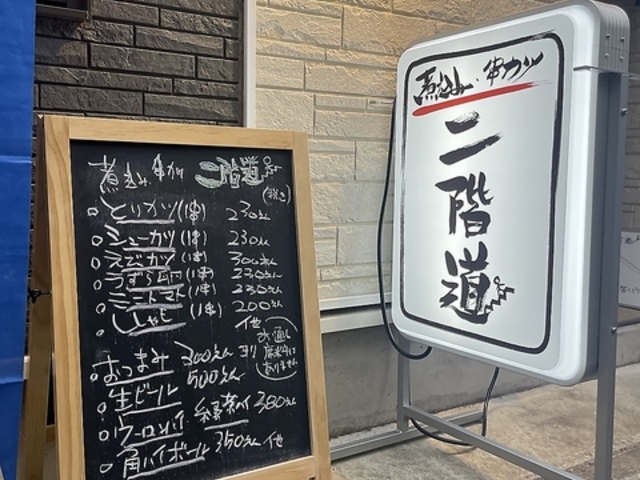 煮込み 串カツ 二階道
(税込)
とりカツ(1串) 230えん
シューカツ(1串) 230えん
えびカツ(1串) 300えん
うずら卵(1串) 230えん
ミニトマト(1串) 230えん
ししゃも(1串) 200えん
他
おつまみ 300えんより
お通し
席料は
ありません
生ビール 500えん
ウーロンハイ 緑茶ハイ 380えん
角ハイボール 350えん 他
煮込み・串カツ
二階道